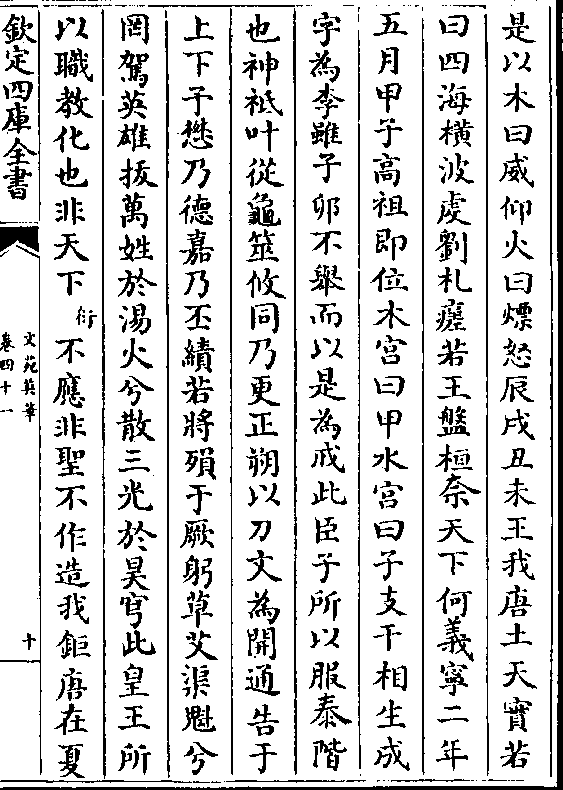 是以木曰威仰火曰熛怒辰戌丑未王我唐土天寶若
曰四海橫波虔劉札瘥若王盤桓奈天下何義寧二年
五月甲子高祖即位木宮曰甲水宮曰子支干相生成
字為李雖子卯不舉而以是為戒此臣子所以服泰階
也神祇叶從龜筮攸同乃更正朔以刀文為開通告于
上下予懋乃德嘉乃丕績若將殞于厥躬草艾渠魁兮
罔駕英雄拔萬姓於湯火兮散三光於昊穹此皇王所
以職教化也非天下衍不應非聖不作造我鉅唐在夏
欽定四庫全書
文苑英華
卷四十一
十